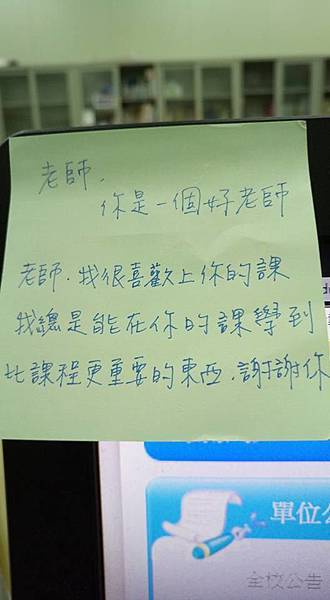 老師，
你是一個好老師
老師，我很喜歡上你的課
我總是能在你的課學到
比課程更重要的東西，謝謝你
單位公
全校公告